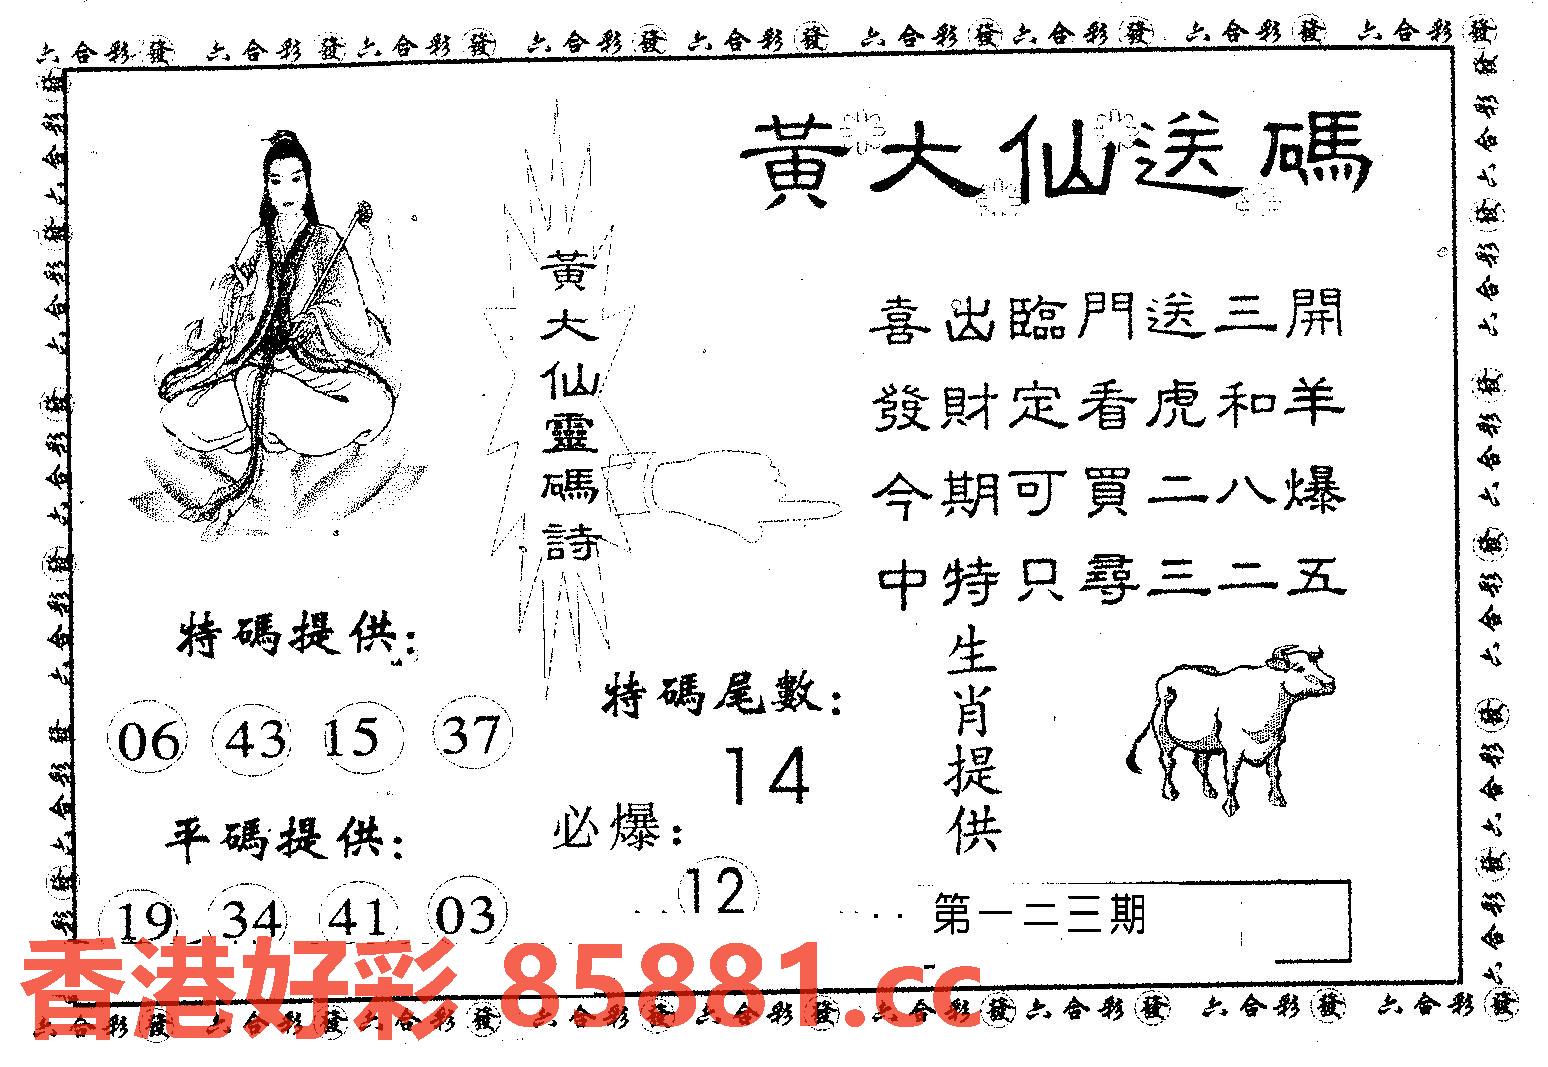 六合彩發 六合彩發 六合彩發 六合彩發 六合彩發 六合彩發 六合彩發 六合彩發 六合彩發
黃大仙送碼
黃大仙靈碼詩
喜出臨門送三開
發財定看虎和羊
今期可買二八爆
中特只尋三二五
特碼提供：
06 43 15 37
平碼提供：
19 34 41 03
特碼尾數：
14
必爆：
12
生肖提供
第一二三期
香港好彩 85881.cc
六合彩發 六合彩發 六合彩發 六合彩發 六合彩發 六合彩發 六合彩發 六合彩發 六合彩發